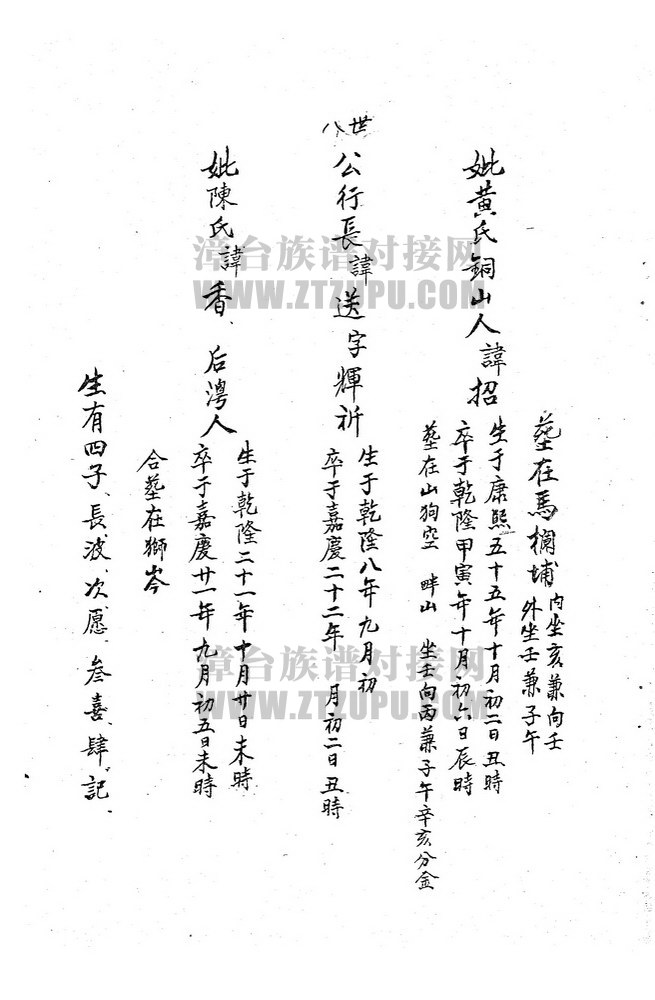 塟在馬欄埔 內坐亥兼向壬
外坐壬兼子午
妣黄氏銅山人諱招 生于康熙五十五年十月初二日丑時
卒于乾隆甲寅年十月初六日辰時
塟在山狗空 畔山 坐壬向丙兼子午辛亥分金
八世
公行長諱送字輝祈 生于乾隆八年九月初
卒于嘉慶二十二年 月初二日丑時
妣陳氏諱香、后灣人 生于乾隆二十一年十月廿日未時
卒于嘉慶廿一年九月初五日未時
合塟在獅岺
生有四子、長波、次愿、叁喜、肆記、
漳台族谱对接网
WWW.ZTZUPU.COM
漳台族谱对接网
WWW.ZTZUPU.COM